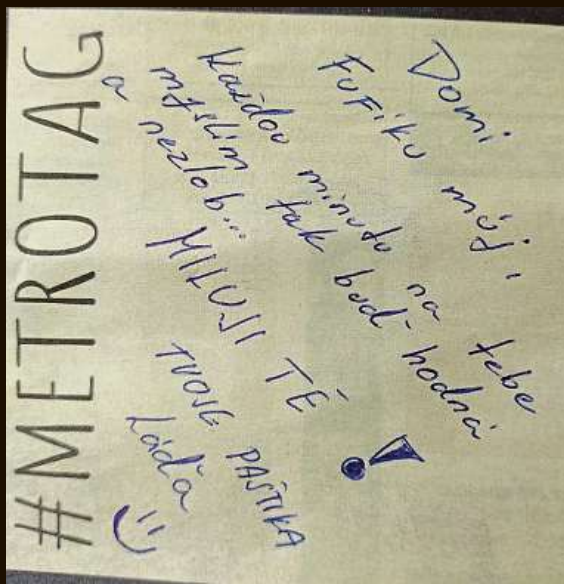 #METROTAG
Domi
FUFíKU můj,
každou minutu na tebe
myslím tak buď hodná
a nezlob...
MILUJI TĚ !
TVOJE PAŠTIKA
Láďa